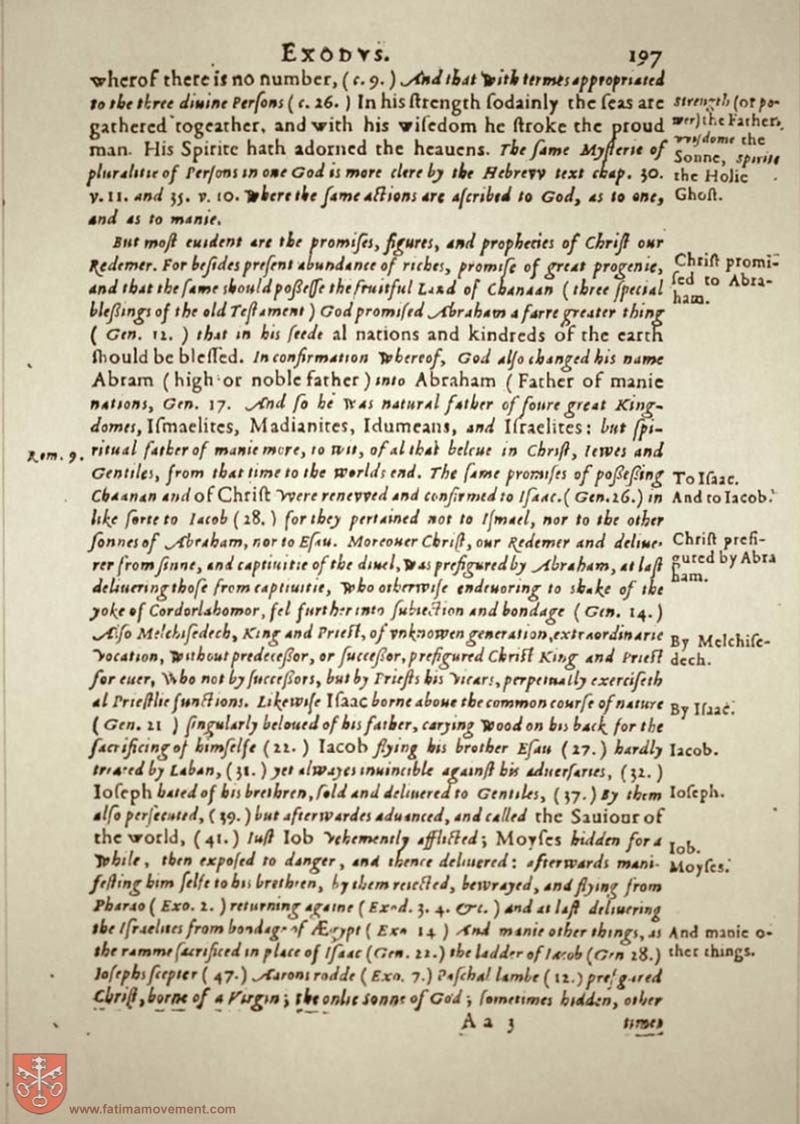 EXODVS. 197
wherof there is no number, (c. 9.) And that with termes appropriated
to the three diuine Persons (c. 26.) In his ſtrength ſodainly the ſeas are
gathered togeather, and with his wiſedom he ſtroke the proud
man. His Spirite hath adorned the heauens. The ſame Myſterie of
pluralitie of Perſons in one God is more clere by the Hebrevv text chap. 30.
v. 11. and 35. v. 10. Where the ſame actions are aſcribed to God, as to one,
and as to manie.
Strength (or po-
wer) the Father,
vviſdome the
Sonne, spirite
the Holie
Ghoſt.
But moſt euident are the promiſes, figures, and prophecies of Chriſt our
Redemer. For beſides preſent abundance of riches, promiſe of great progenie,
and that the ſame should poßeſſe the fruitful Land of Chanaan (three ſpecial
bleßings of the old Teſtament) God promiſed Abraham a farre greater thing
(Gen. 12.) that in his ſeede al nations and kindreds of the earth
ſhould be bleſſed. In confirmation Whereof, God alſo changed his name
Abram (high or noble father) into Abraham (Father of manie
nations, Gen. 17. And ſo he Was natural father of foure great King-
domes, Iſmaelites, Madianites, Idumeans, and Iſraelites: but ſpi-
ritual father of manie more, to wit, of al that beleue in Chriſt, Iewes and
Gentiles, from that time to the worlds end. The ſame promiſes of poßeßing
Chaanan and of Chriſt Were renevved and confirmed to Iſaac. (Gen. 26.) in
like ſorte to Iacob (28.) for they pertained not to Iſmael, nor to the other
ſonnes of Abraham, nor to Eſau. Moreouer Chriſt, our Redemer and deliue-
rer from ſinne, and captiuitie of the diuel, Was prefigured by Abraham, at laſt
deliuering thoſe from captiuitie, Who otherwiſe endeuoring to shake of the
yoke of Cordorlahomor, fel further into ſubiection and bondage (Gen. 14.)
Alſo Melchiſedech, King and Prieſt, of vnknowen generation, extraordinarie
Vocation, Without predeceßor, or ſucceßor, prefigured Chriſt King and Prieſt
for euer, Who not by ſucceſſors, but by Prieſts his Vicars, perpetually exerciſeth
al Prieſtlie functions. Likewiſe Iſaac borne aboue the common courſe of nature
(Gen. 21) ſingularly beloued of his father, carying Wood on his back for the
ſacrificing of himſelfe (22.) Iacob flying his brother Eſau (27.) hardly
treated by Laban, (31.) yet alwayes inuincible againſt his aduerſaries, (32.)
Ioſeph hated of his brethren, ſold and deliuered to Gentiles, (37.) By them
alſo perſecuted, (39.) but afterwardes aduanced, and called the Sauiour of
the world, (41.) Iuſt Iob Vehemently afflicted; Moyſes hidden for a
While, then expoſed to danger, and thence deliuered: afterwards mani-
feſting him ſelfe to his brethren, by them reiected, bewrayed, and flying from
Pharao (Exo. 2.) returning againe (Exod. 3. 4. &c.) and at laſt deliuering
the Iſraelites from bondage of Ægypt (Exo 14) And manie other things, as
the ramme ſacrificed in place of Iſaac (Gen. 22.) the ladder of Iacob (Gen 28.)
Ioſephs ſcepter (47.) Aarons rodde (Exo. 7.) Paſchal lambe (12.) prefigured
Chriſt, borne of a Virgin; the onlie Sonne of God; ſometimes hidden, other
Chriſt promi-
ſed to Abra-
ham.
Rom. 9.
To Iſaac.
And to Iacob.
Chriſt prefi-
gured by Abra
ham.
By Melchiſe-
dech.
By Iſaac.
Iacob.
Ioſeph.
Iob.
Moyſes.
And manie o-
ther things.
A a 3 times
www.fatimamovement.com